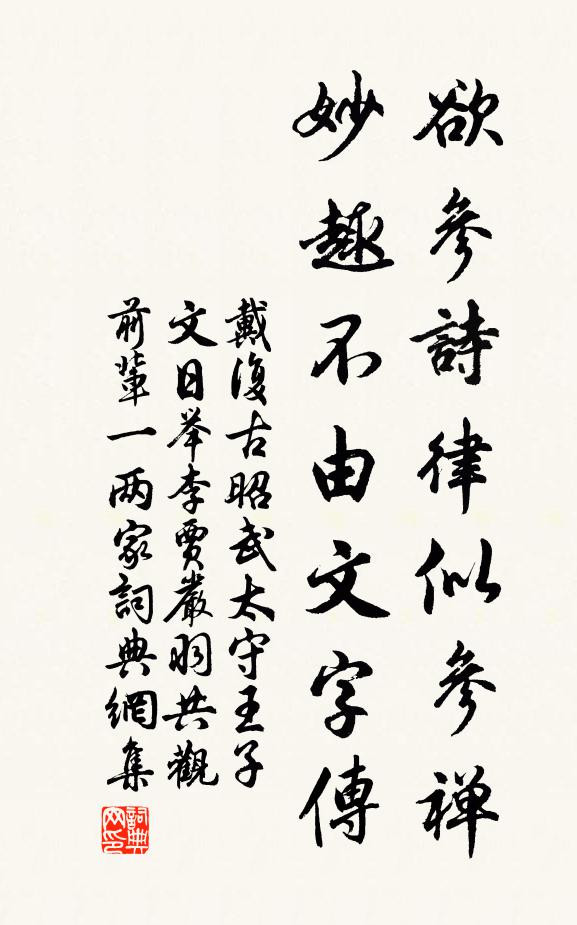 欲參詩律似參禅
妙趣不由文字傳
戴復古昭武太守王子
文日举李賈嚴羽共觀
前輩一两家詞典網集
詞典网印